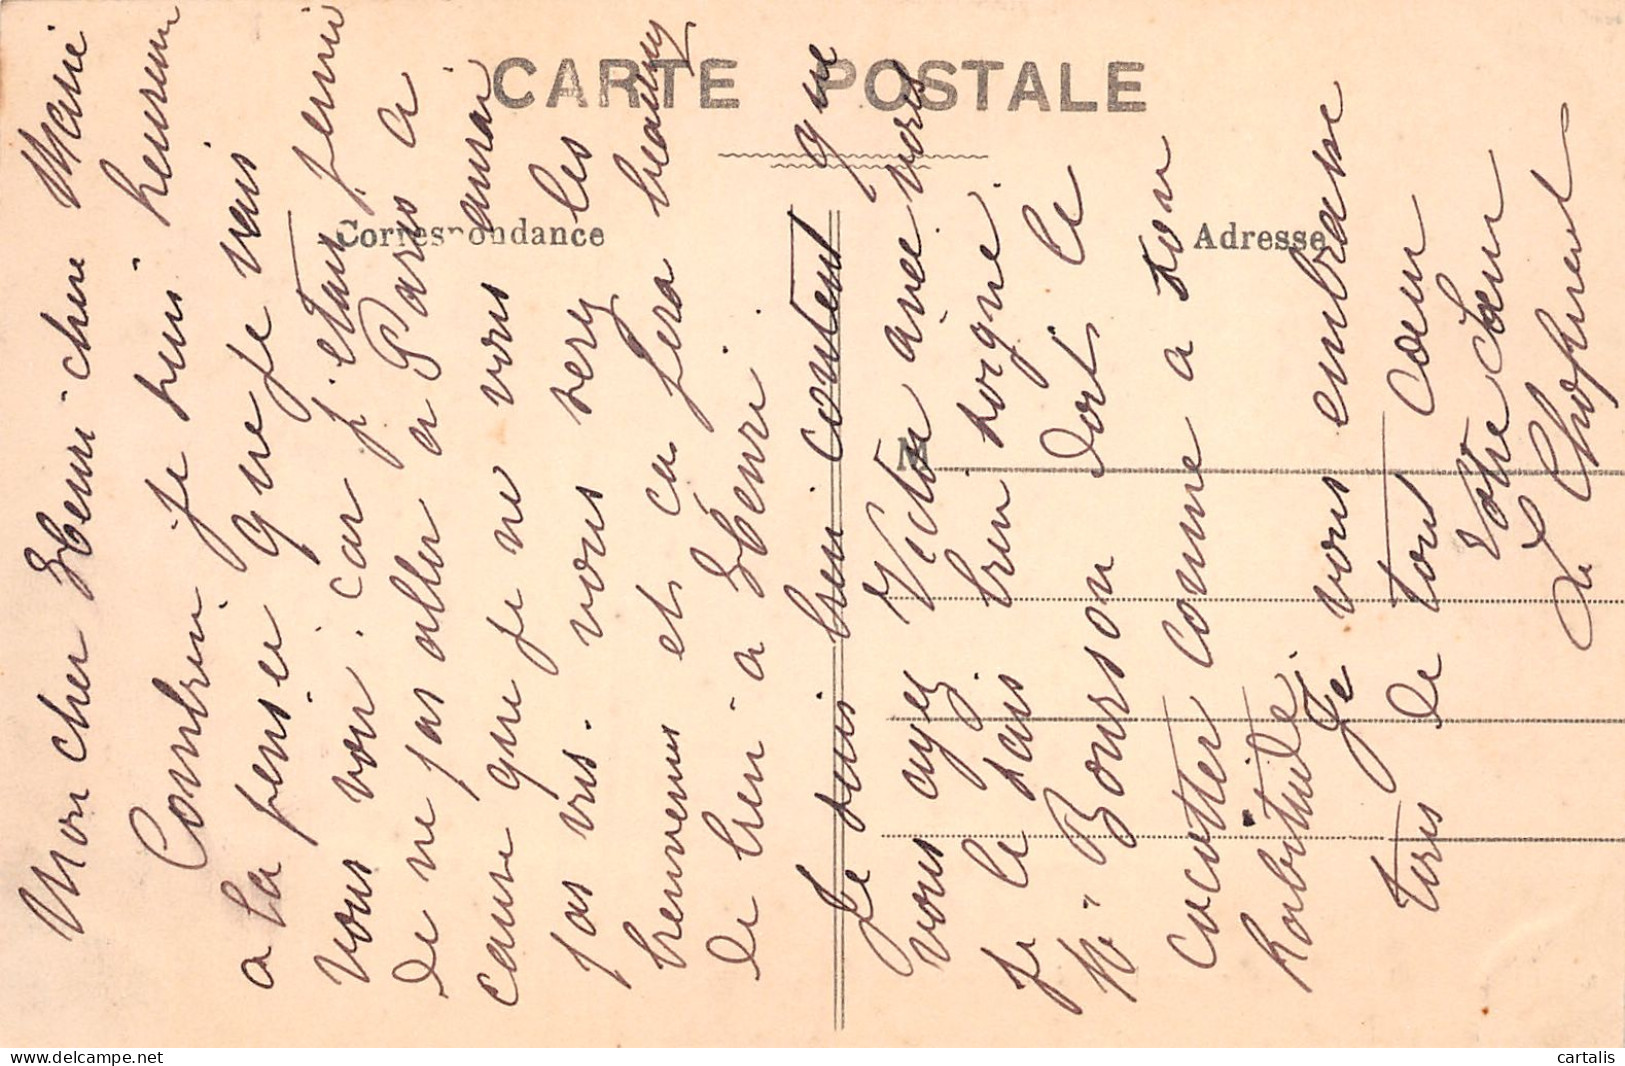 CARTE POSTALE
Correspondance
Adresse
M
Mon cher Henri chère Marie
Combien je suis heureux
a la pensée que je vais
vous voir. car j'etais fermé
de ne pas aller a Paris a
cause que je ne vous aurai
pas vus. vous serez les
bienvenus et ca fera beaucoup
de bien a Henri.
Je suis bien content que
vous ayez Victor avec vous
je le sais bien soigné.
Mr Bourson doit le
cocotter comme a son
habitude.
Je vous embrasse
tous de tout cœur
Votre sœur
cartalis